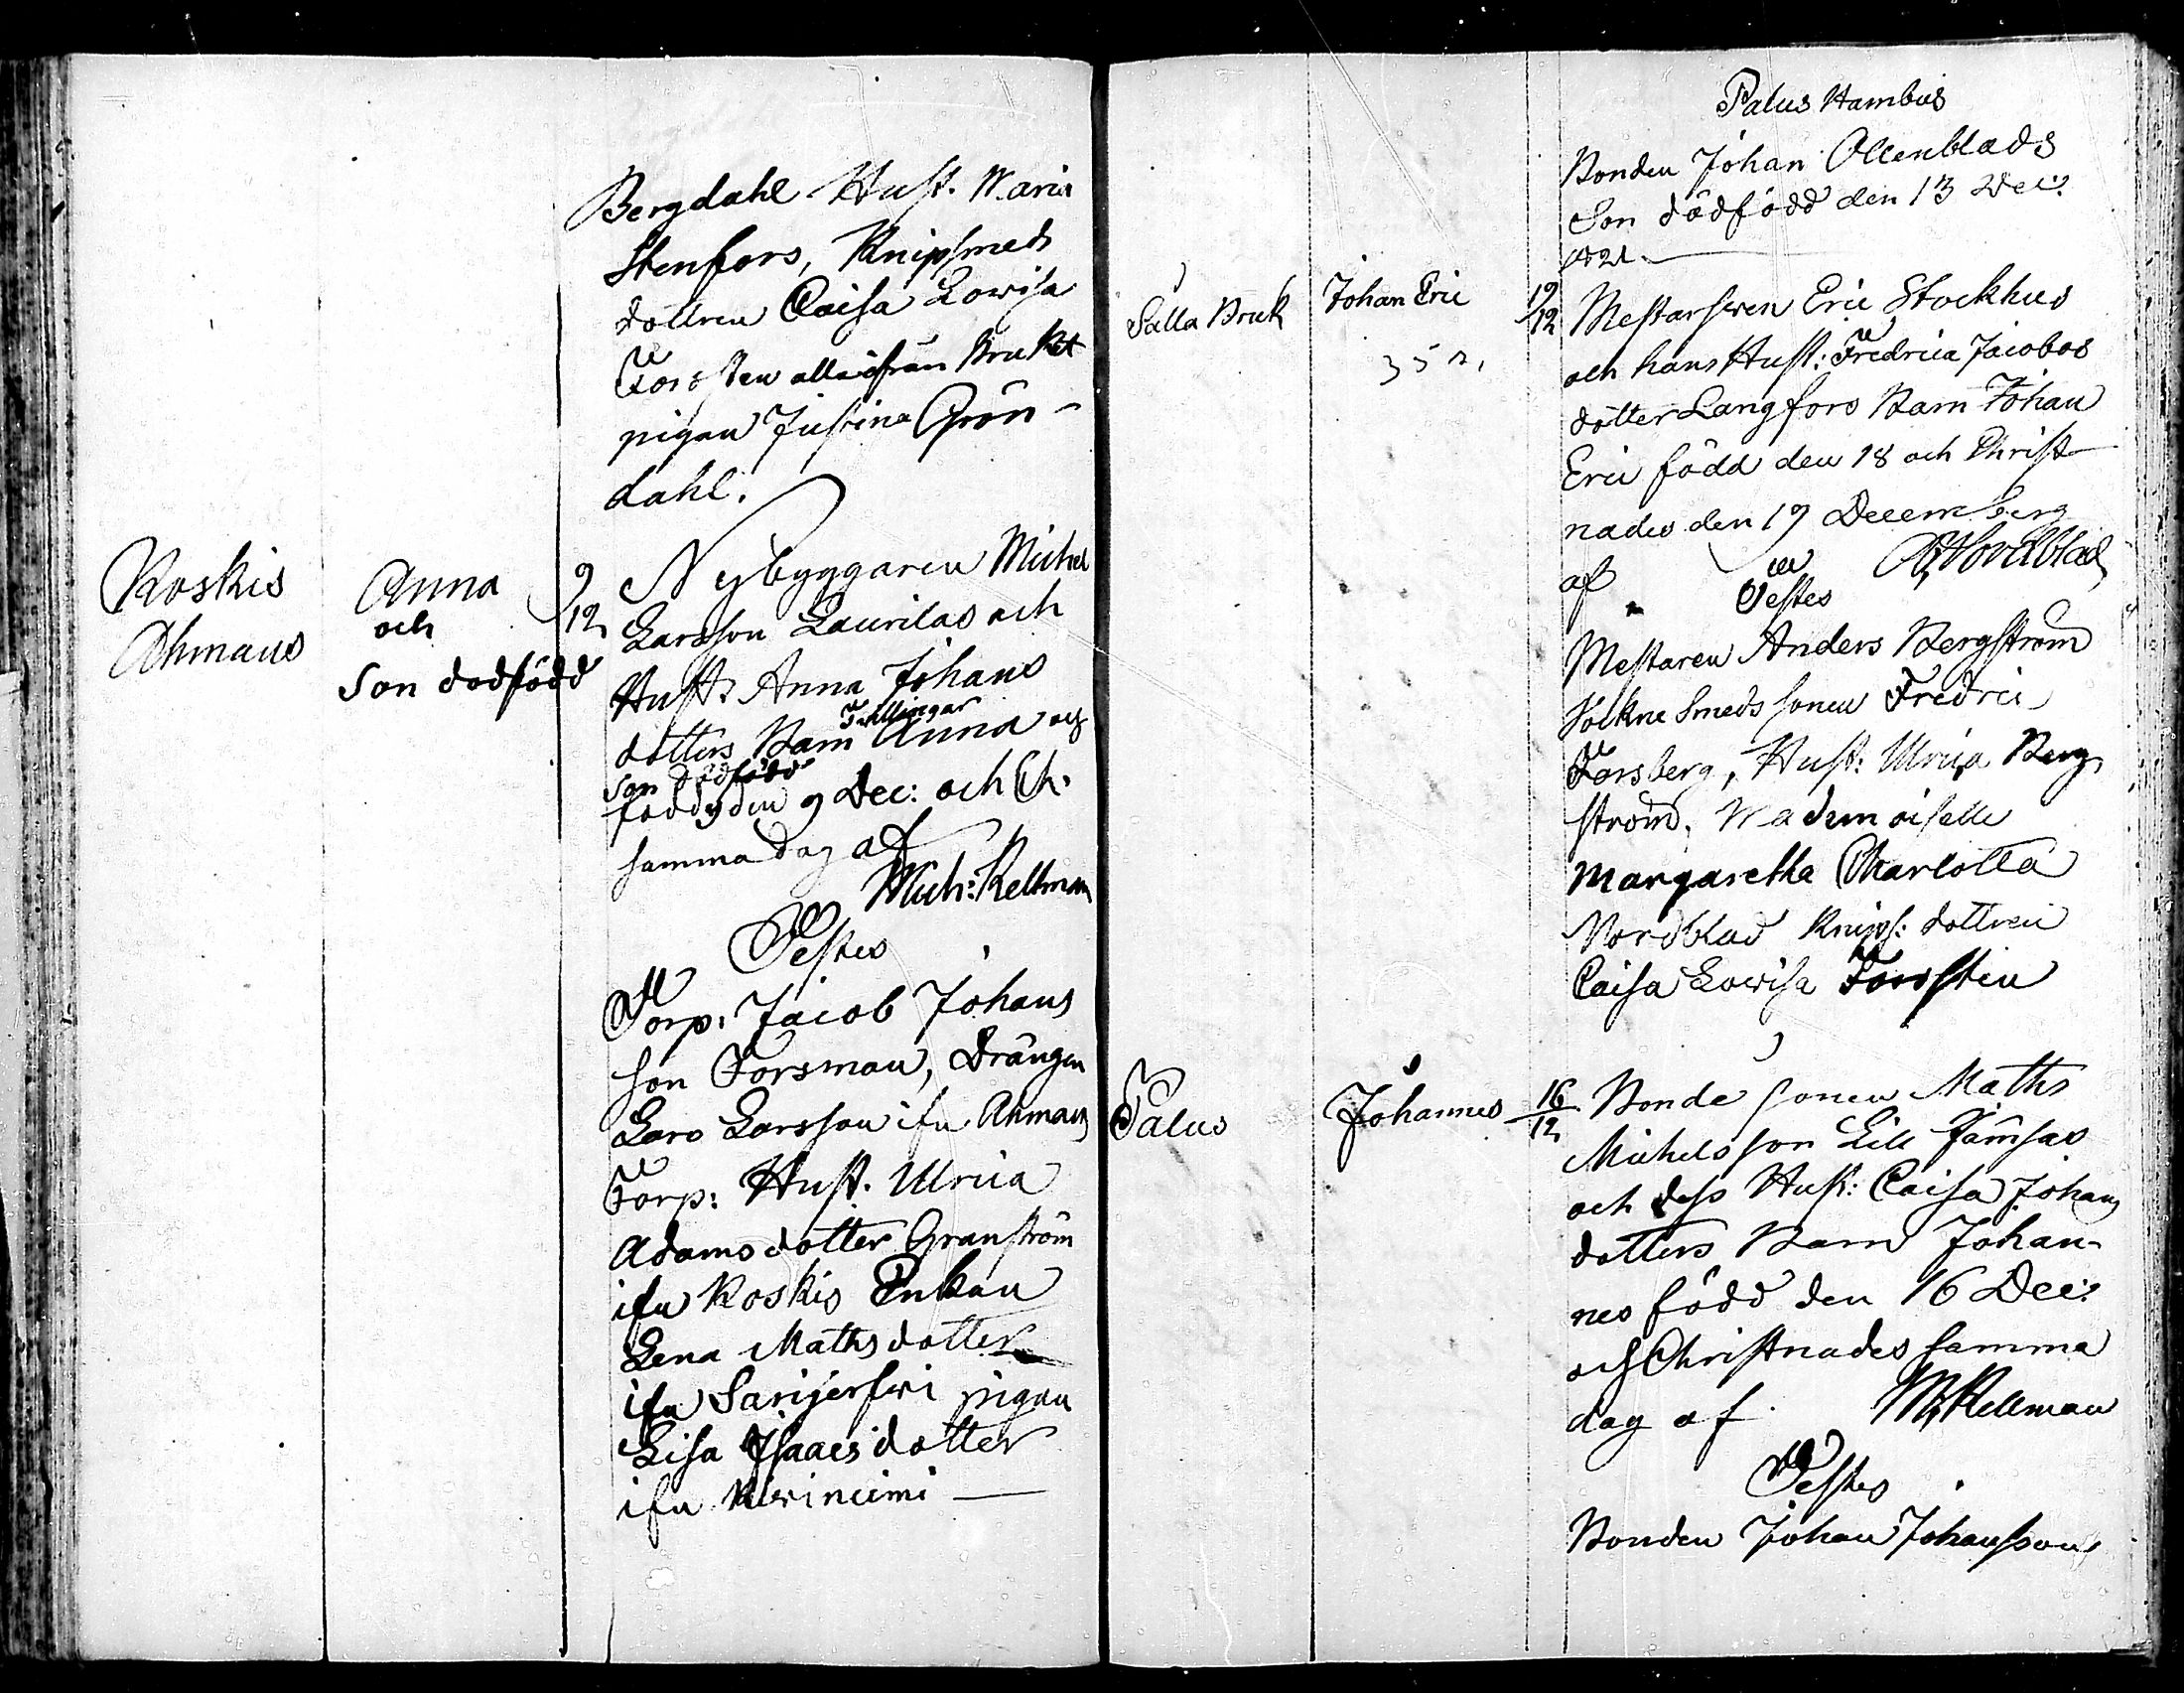 Bergdahl Hust. Maria
Stenfors, Knipsmeds
dottren Caisa Lowisa
Forsten alla ifrån Bruket
pigan Justina Grön-
dahl.
Koskis
Ahmaus
Anna
och
Son dödfödd
9/12
Nybyggaren Michel
Larsson Laurilas och
Hust: Anna Johans
dotters Barn Tvillingar Anna och
Son dödfödd
födde den 9 Dec: och Ch.
samma dag af
Mich: Kellman
Testes
Torp: Jacob Johans
son Forsman, Drängen
Lars Larsson ifn Ahmaus
Torp: Hust. Ulrica
Adamsdotter Granström
ifn Koskis Enkan
Lena Mathsdotter
ifn Sarijerfwi pigan
Lisa Isaacsdotter
ifn Kiviniemi
Palus Hambus
Bonden Johan Ollenblads
Son dödfödd den 13 Dec:
1821.
Salla Bruk
Johan Eric
19/12
Mestarsven Eric Stockhus
och hans Hust: Fredrica Jacobs
dotter Langfors Barn Johan
Eric född den 18 och Christ
nades den 19 December
af Nordblad
Testes
Mestaren Anders Bergström
Sockne Smeds sonen Fredric
Forsberg, Hust: Ulrica Berg
ström, Mademoiselle
Margaretha Charlotta
Nordblad Knips: dottren
Caisa Lowisa Forsten
Palus
Johannes
16/12
Bonde sonen Maths
Michelsson Lill Jämsas
och dess Hust: Caisa Johans
dotters Barn Johan-
nes född den 16 Dec:
och Christnades samma
dag af M Kellman
Testes
Bonden Johan Johansson